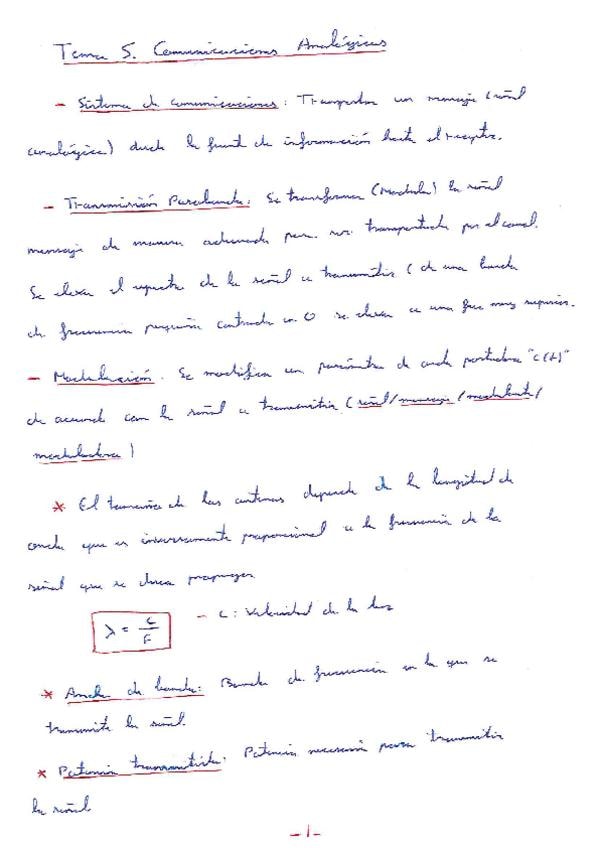 Tema 5. Comunicaciones Analógicas
- Sistema de comunicaciones: Transportar un mensaje (señal
analógica) desde la fuente de información hasta el receptor.
- Transmisión Pasobanda: Se transforma (Modula) la señal
mensaje de manera adecuada para ser transportada por el canal.
Se eleva el espectro de la señal a transmitir (de una banda
de frecuencia pequeña centrada en 0 se eleva a una frec muy superior.
- Modulación. Se modifica un parámetro de onda portadora "c(t)"
de acuerdo con la señal a transmitir (señal/mensaje/modulante/
moduladora)
* El tamaño de las antenas depende d la longitud de
onda que es inversamente proporcional a la frecuencia de la
señal que se desea propagar
λ = c/F - c: Velocidad de la luz
* Ancho de banda: Banda de frecuencia en la que se
transmite la señal.
* Potencia transmitida: Potencia necesaria para transmitir
la señal
-1-